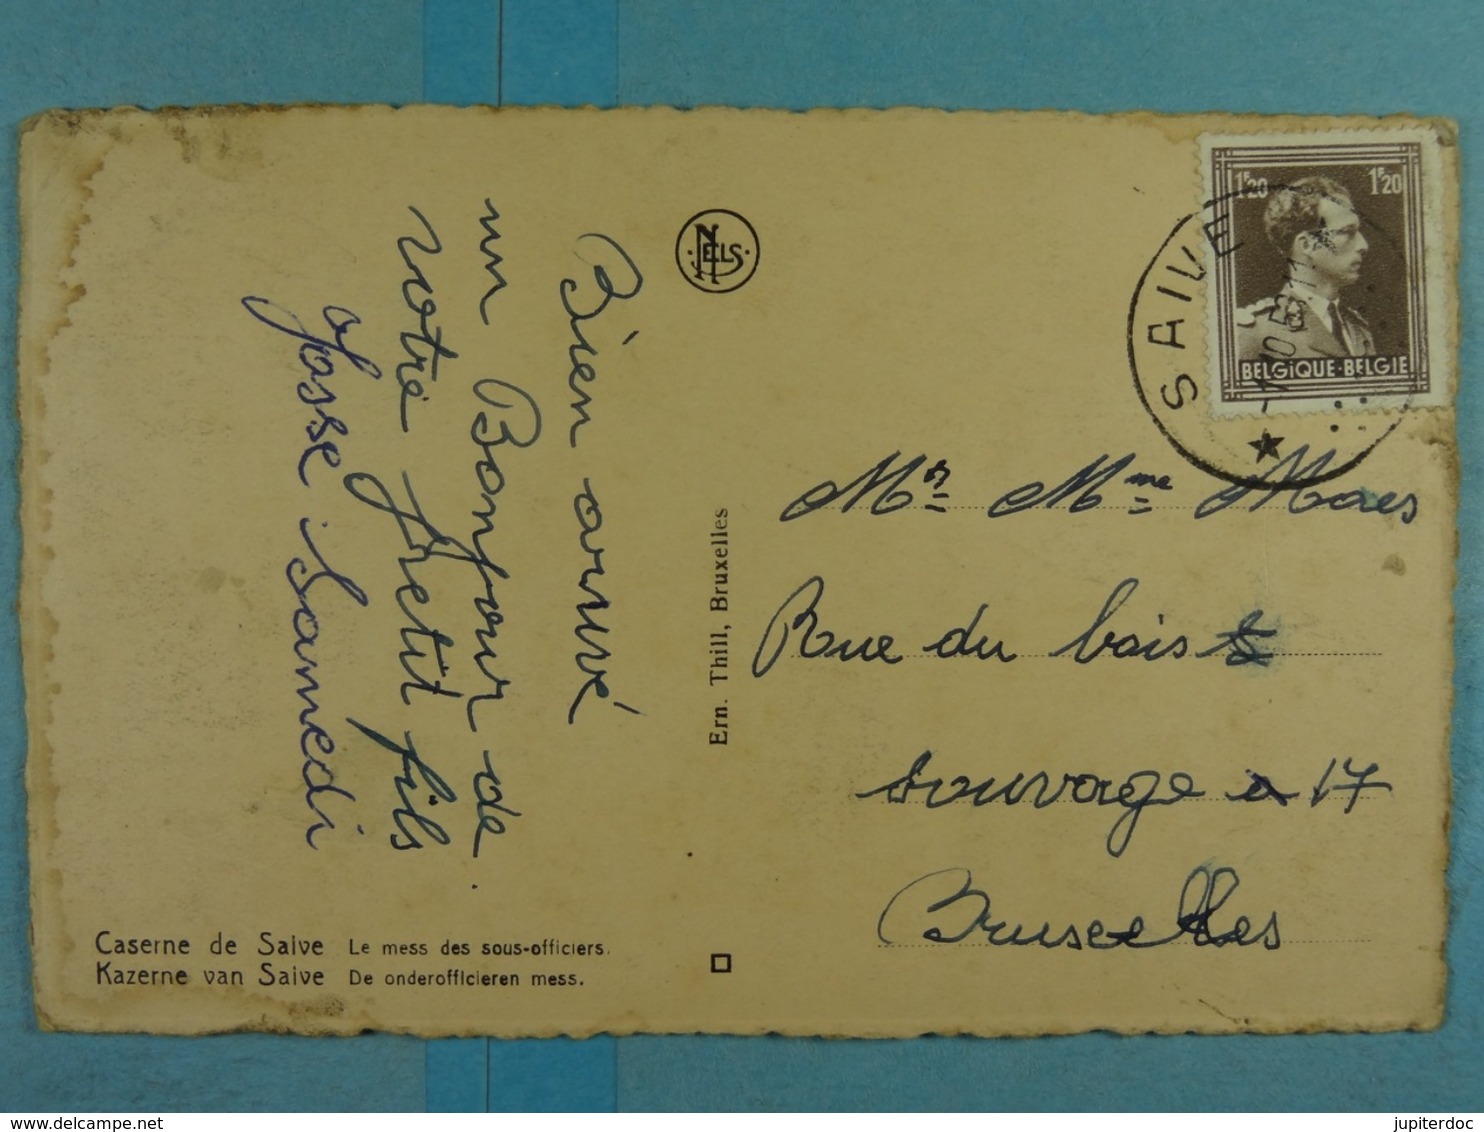 Bien arrivé
un Bonjour de
votre petit fils
Josse Samedi
NELS
Ern. Thill, Bruxelles
1F20 1F20
BELGIQUE·BELGIE
SAIVE
Mr Mme Maes
Rue du bois
sauvage 17
Bruxelles
Caserne de Saive Le mess des sous-officiers.
Kazerne van Saive De onderofficieren mess.
jupiterdoc
www.delcampe.net